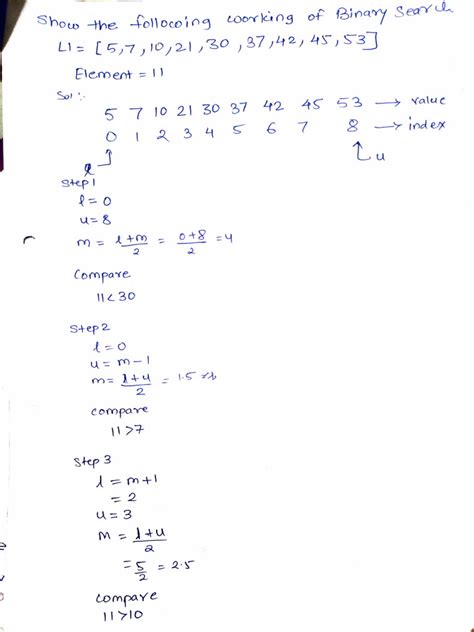 Show the following working of Binary Search
L1 = [5,7,10,21,30,37,42,45,53]
Element = 11
Sol :-
5 7 10 21 30 37 42 45 53 → value
0 1 2 3 4 5 6 7 8 → index
l u
Step 1
l = 0
u = 8
m = l+m/2 = 0+8/2 = 4
Compare
11<30
Step 2
l = 0
u = m-1
m = l+u/2 = 1.5
compare
11>7
Step 3
l = m+1
= 2
u = 3
m = l+u/2
= 5/2 = 2.5
compare
11>10